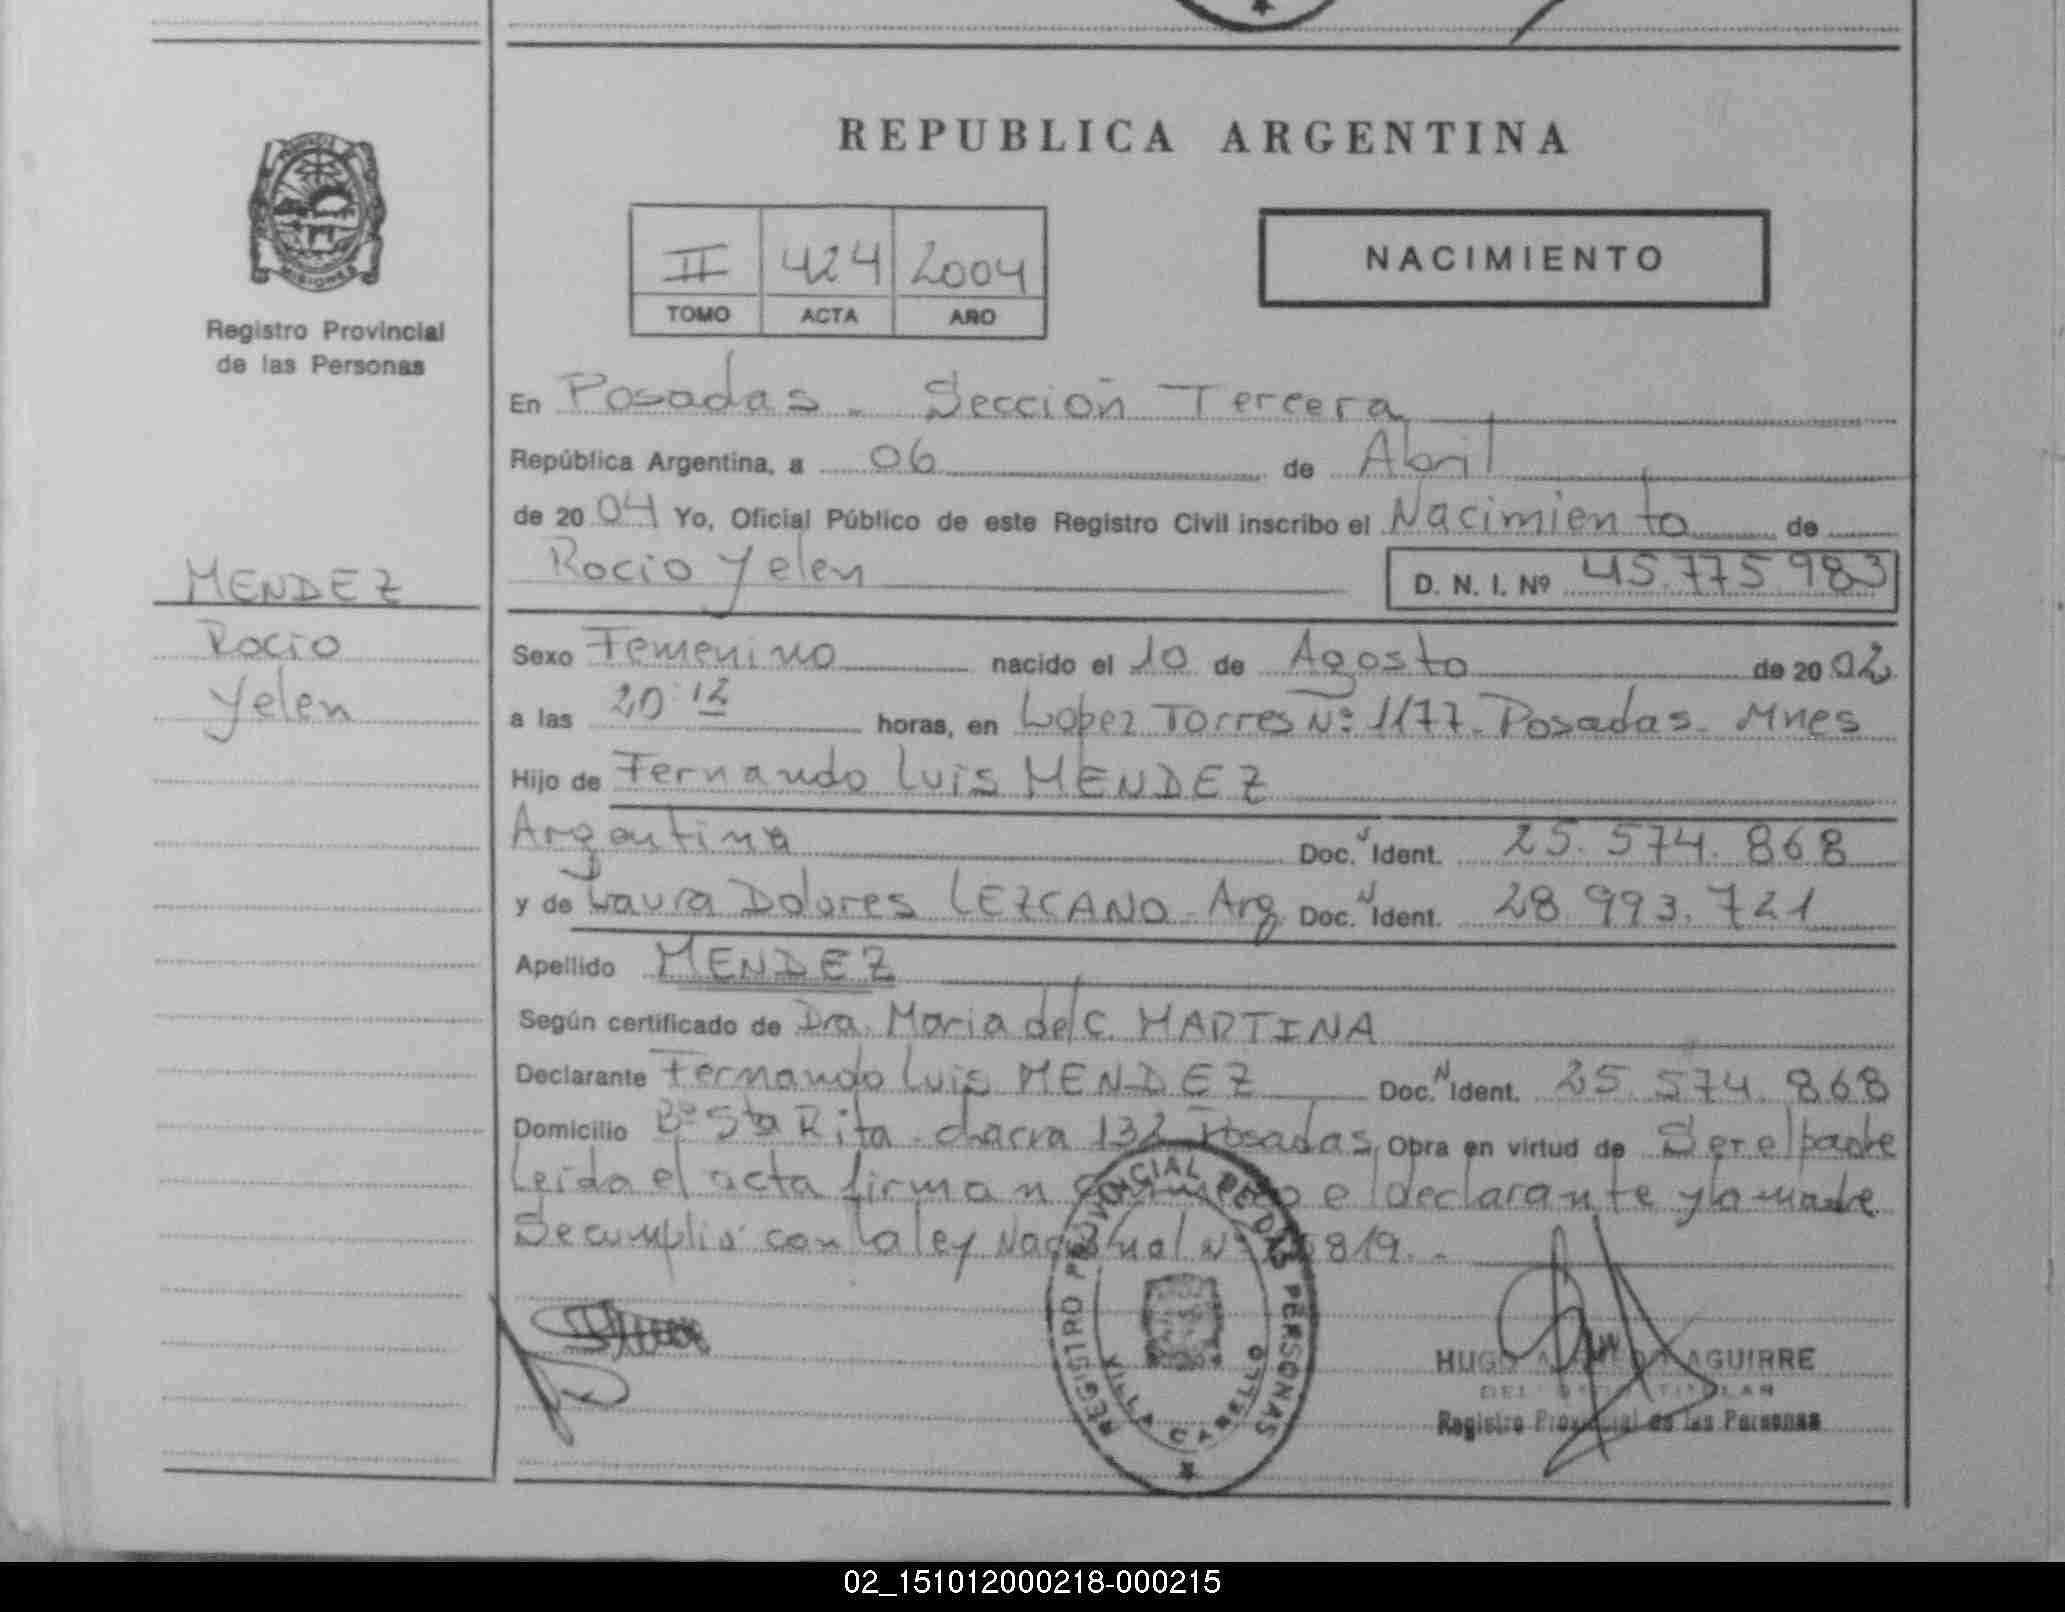 REPUBLICA ARGENTINA
MISIONES
Registro Provincial
de las Personas
II 424 2004
TOMO ACTA AÑO
NACIMIENTO
En Posadas - Sección Tercera
República Argentina, a 06 de Abril
de 2004 Yo, Oficial Público de este Registro Civil inscribo el Nacimiento de
Rocio Yelen D. N. I. Nº 45.775983
MENDEZ
Rocio
Yelen
Sexo Femenino nacido el 10 de Agosto de 2002
a las 20:12 horas, en Lopez Torres Nº 1177. Posadas - Mnes
Hijo de Fernando Luis MENDEZ
Argentina Doc. N Ident. 25.574.868
y de Laura Dolores LEZCANO - Arg Doc. N Ident. 28.993.721
Apellido MENDEZ
Según certificado de Dra. Maria del C. MARTINA
Declarante Fernando Luis MENDEZ Doc. N Ident. 25.574.868
Domicilio Bº Sta Rita - chacra 132 Posadas, Obra en virtud de Ser el padre
Leida el acta firman el declarante y la madre
Se cumplió con la ley Nacional Nº 819. -
REGISTRO PROVINCIAL DE LAS PERSONAS
VILLA CABELLO
HUGO AGUIRRE
Registro Provincial de las Personas
02_151012000218-000215